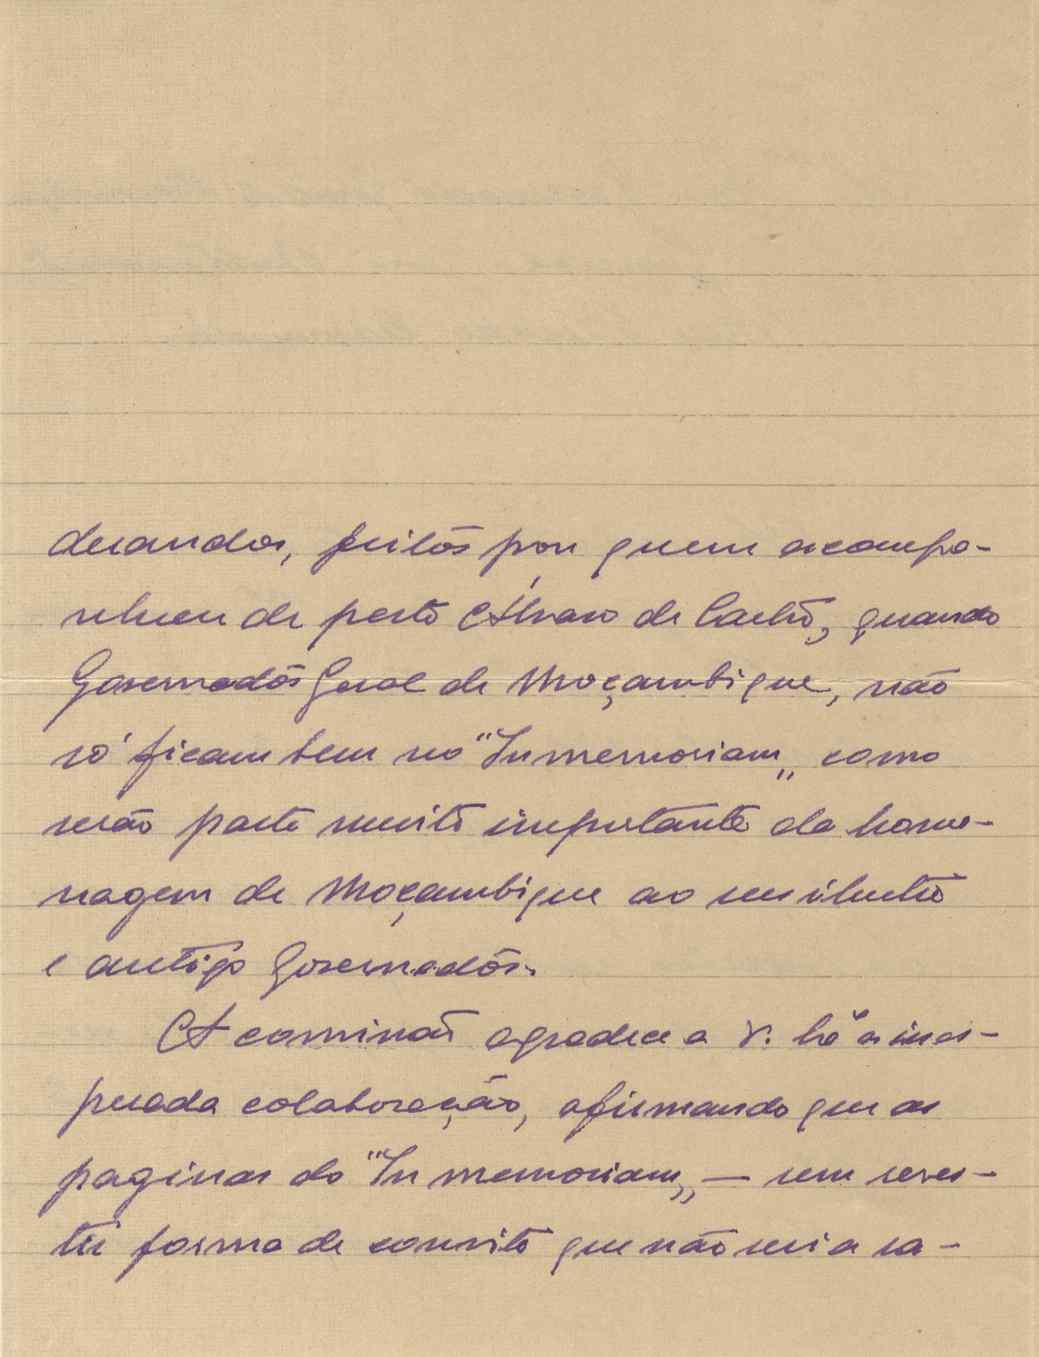 derandos, feitos por quem acompa-
nhou de perto Álvaro de Castro, quando
Governadôr Geral de Moçambique, não
só ficam bem no "In memoriam„ como
serão parte muito importante da home-
nagem de Moçambique ao seu ilustre
e antigo Governadôr.
A comissão agradece a V. a ines-
perada colaboração, afirmando que as
paginas do "In memoriam„ — sem reves-
tir forma de convite que não seria ra-